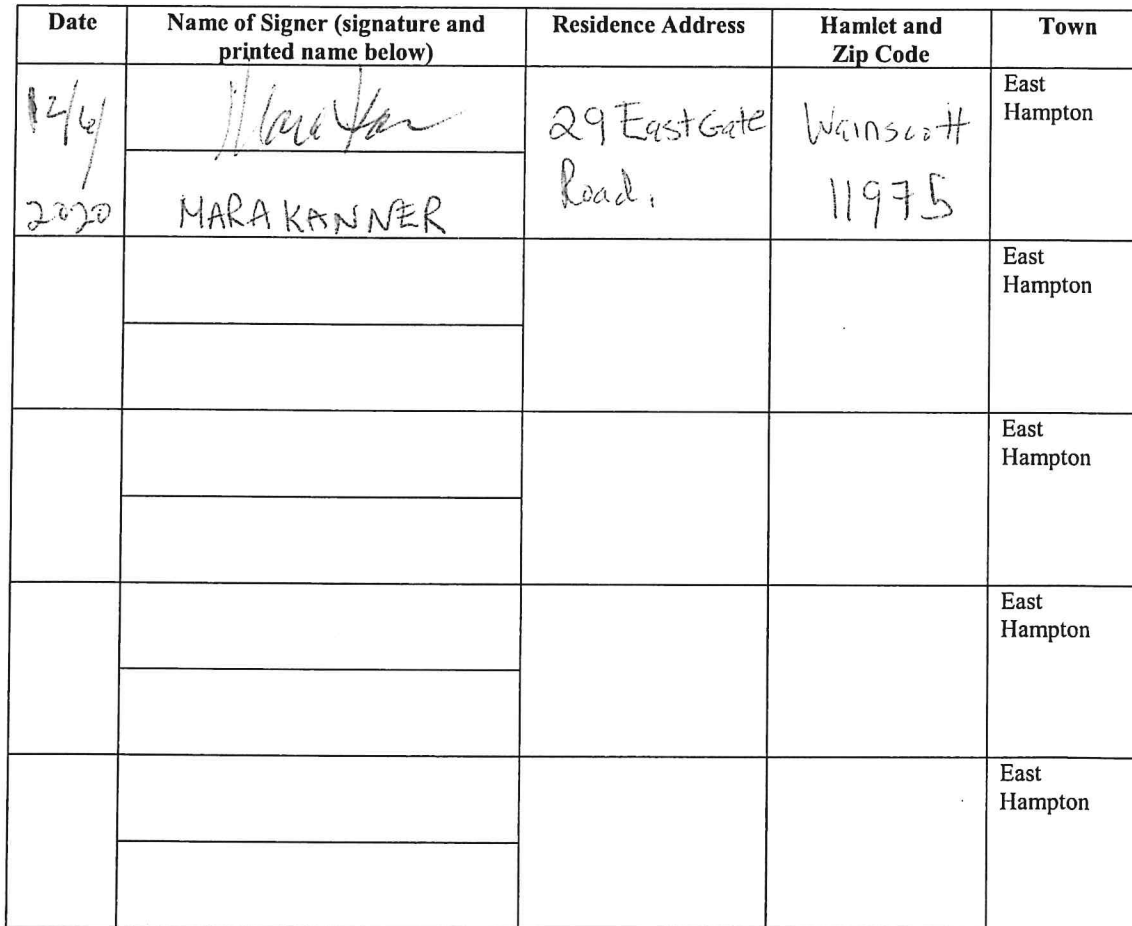 Date Name of Signer (signature and printed name below) Residence Address Hamlet and Zip Code Town
12/6/
2020
MARA KANNER
29 East Gate
Road.
Wainscott
11975
East
Hampton
East
Hampton
East
Hampton
East
Hampton
East
Hampton